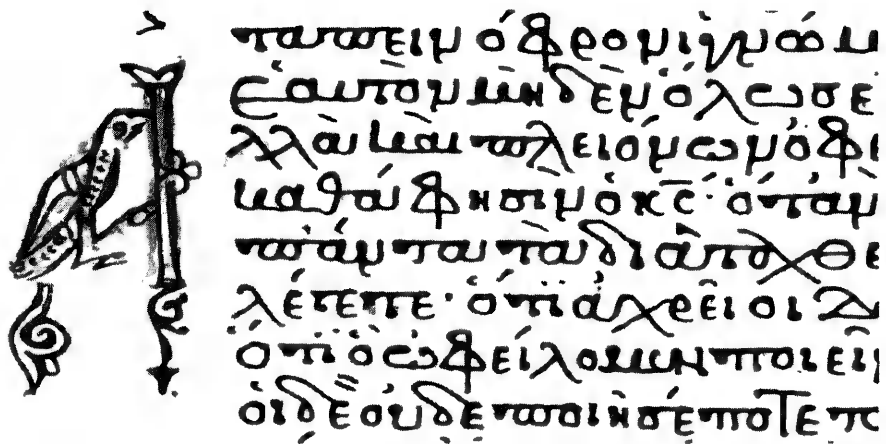 ταπεινόφρονι γνώμ
ἑαυτὸν μηδὲν ὅλως ε
Ἀλλὰ καὶ πλειόνων ὀφει
καθά φησιν ὁ κς· ὅταν
πάντα τὰ διαταχθε
λέγετε· ὅτι ἀχρεῖοι δ
ὅτι ὃ ὠφείλομεν ποιεῖν
οἱ δὲ οὐδὲ ποιῆσέ ποτε π